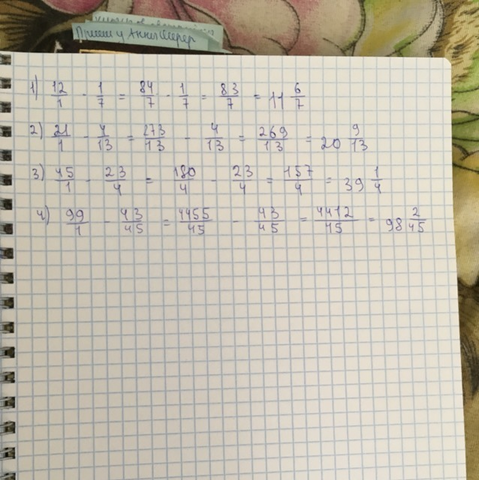 Пришли у Аннет Шерер
1) 12/1 - 1/7 = 84/7 - 1/7 = 83/7 = 11 6/7
2) 21/1 - 4/13 = 273/13 - 4/13 = 269/13 = 20 9/13
3) 45/1 - 23/4 = 180/4 - 23/4 = 157/4 = 39 1/4
4) 99/1 - 43/45 = 4455/45 - 43/45 = 4412/45 = 98 2/45